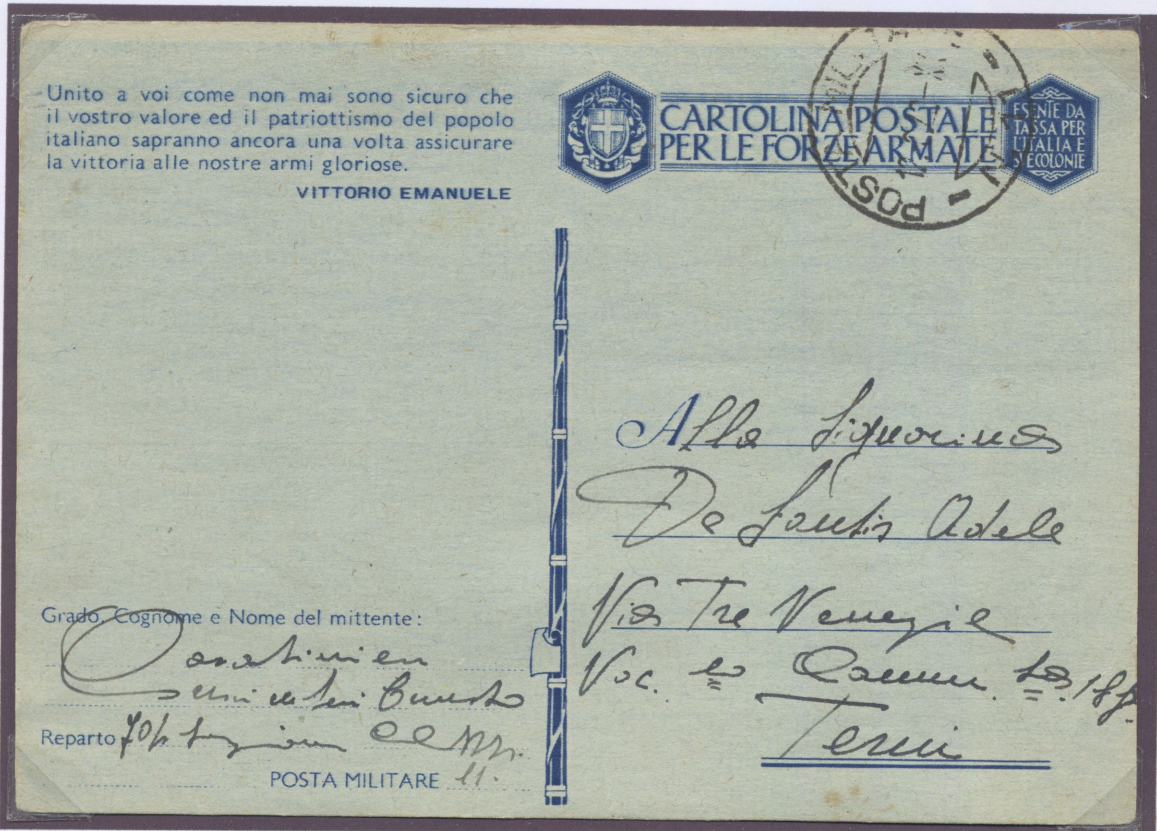 Unito a voi come non mai sono sicuro che
il vostro valore ed il patriottismo del popolo
italiano sapranno ancora una volta assicurare
la vittoria alle nostre armi gloriose.
VITTORIO EMANUELE
CARTOLINA POSTALE
PER LE FORZE ARMATE
ESENTE DA
TASSA PER
L'ITALIA E
COLONIE
POSTA MILITARE
Alla Signorina
De Santis Adele
Via Tre Venezie
Voc.
Terni
Grado, Cognome e Nome del mittente:
Reparto
POSTA MILITARE 11.